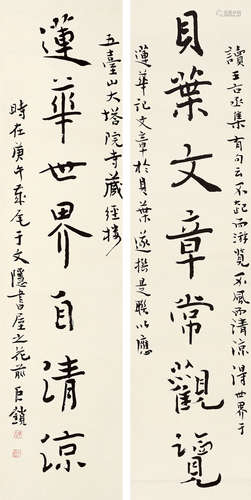 讀王右丞集有句云不起而游覽不風而清涼得世界于
貝葉文章常觀覽
蓮華記文章於貝葉遂撰是聯以應
五臺山大塔院寺藏經樓
蓮華世界自清涼
時在庚午歲尾于文隱書屋之花前巨鎖